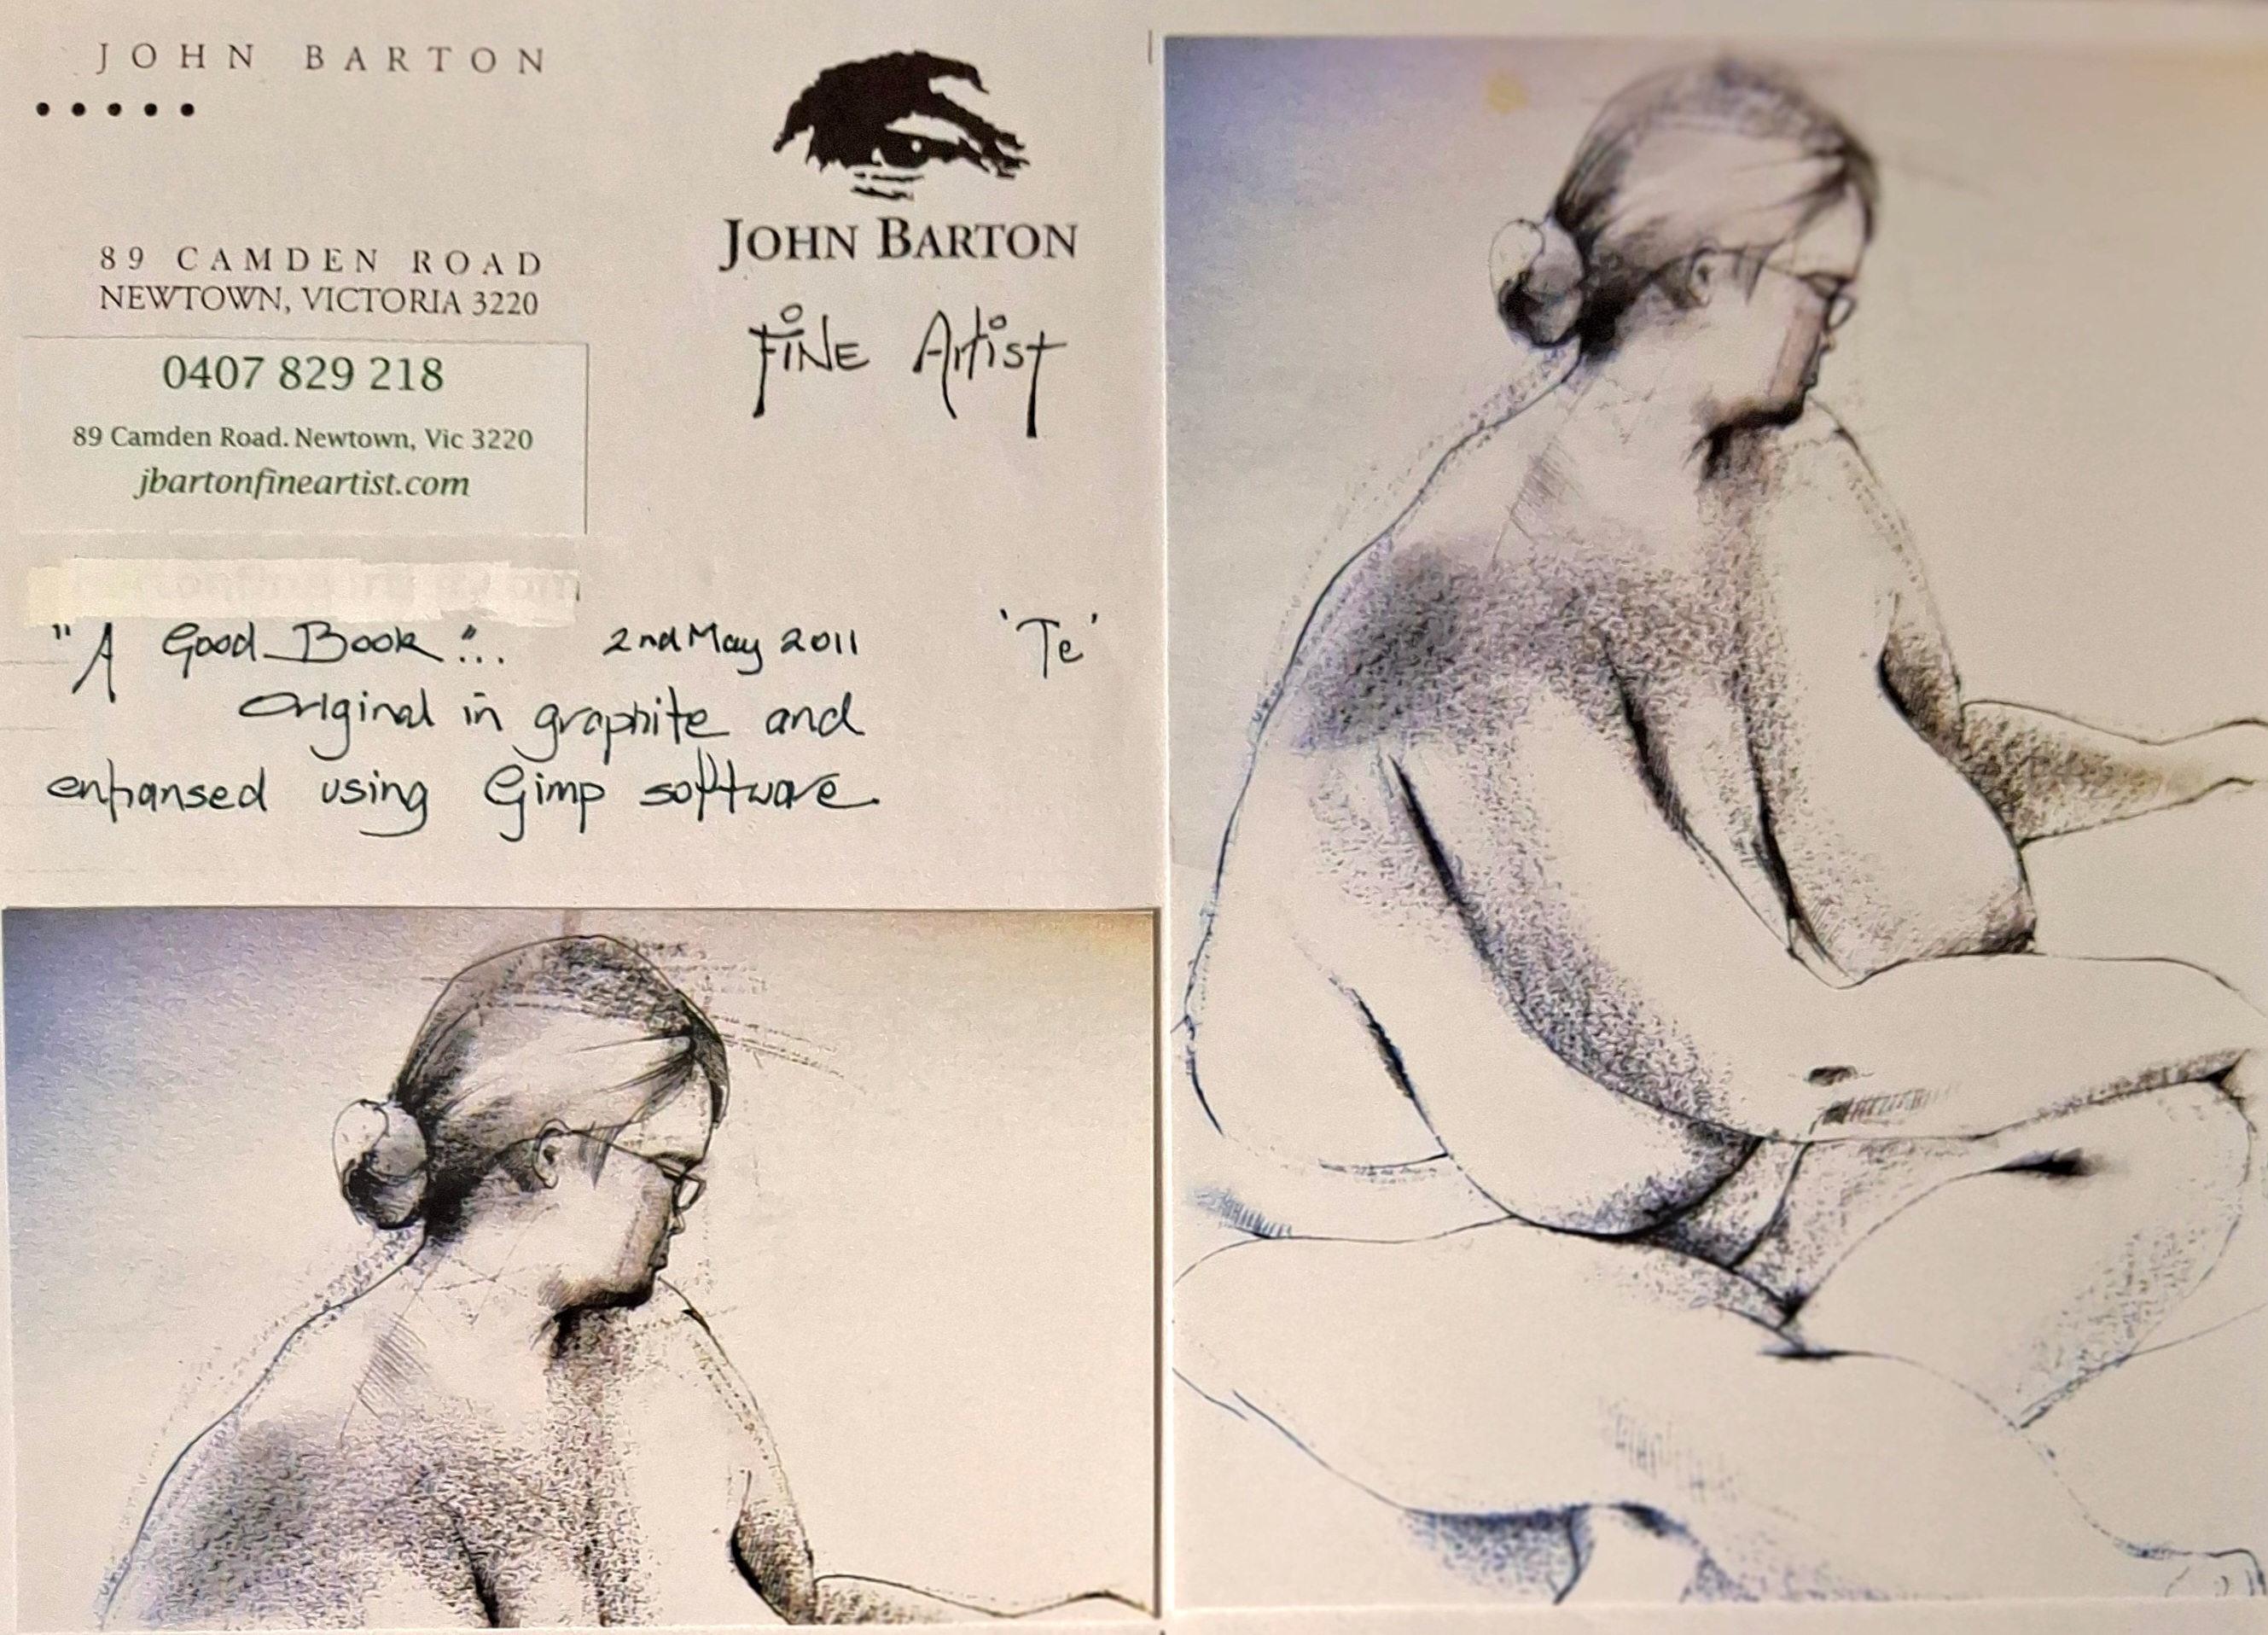 JOHN BARTON
89 CAMDEN ROAD
NEWTOWN, VICTORIA 3220
0407 829 218
89 Camden Road. Newtown, Vic 3220
jbartonfineartist.com
JOHN BARTON
FINE Artist
"A Good Book"... 2nd May 2011 'Te'
Original in graphite and
enhansed using Gimp software.